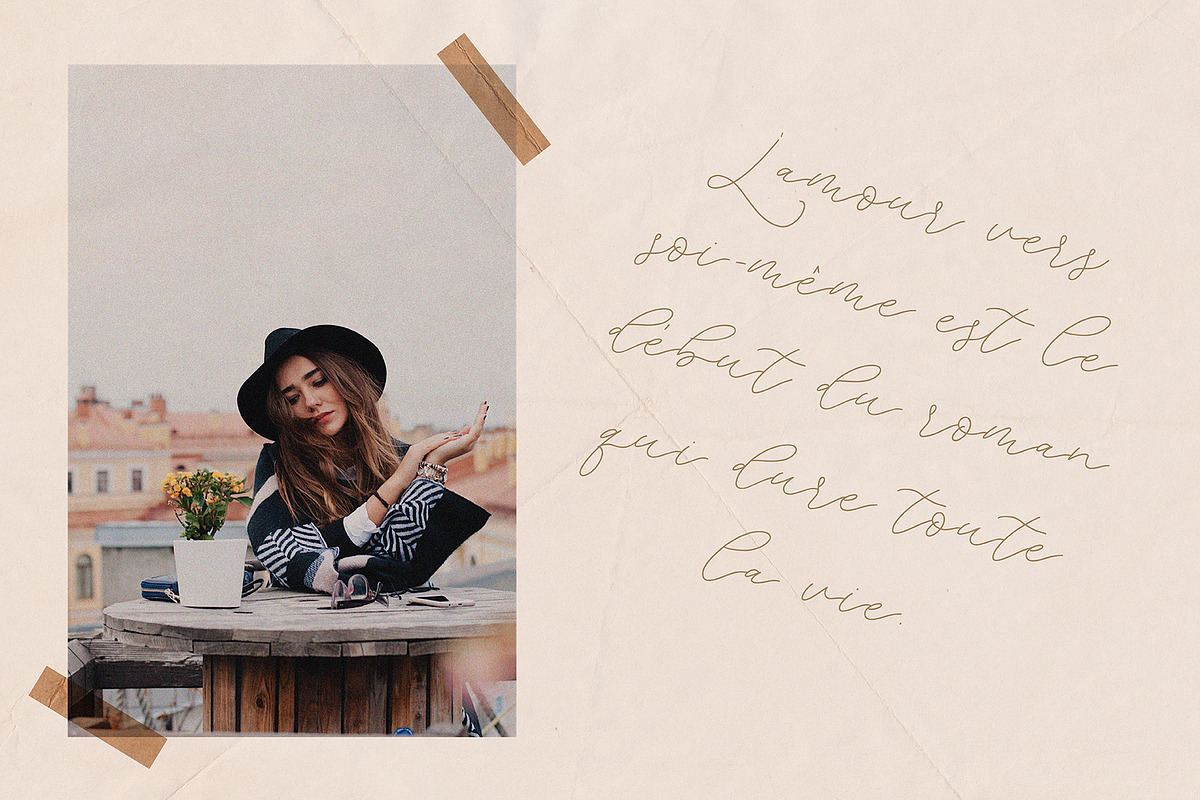 L'amour vers
soi-même est le
début du roman
qui dure toute
la vie.